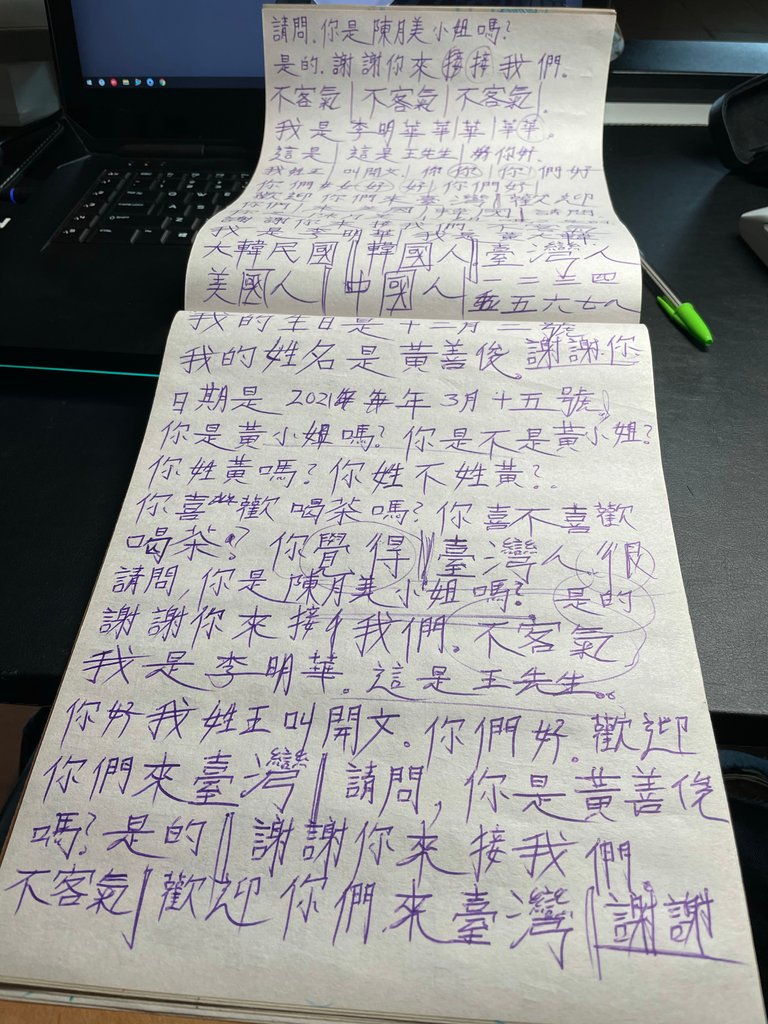 請問,你是陳月美小姐嗎?
是的.謝謝你來接接我們。
不客氣|不客氣|不客氣|
我是李明華華|華|華華。
這是|這是王先生|好你好.
我姓王|叫開文.|你你|你們好
你們 好 好|你們好|
歡迎你們來臺灣|歡迎
請問
謝謝你來接我們
我是李明華
大韓民國|韓國人|臺灣人
美國人|中國人 一二三四
五五六七八
我的生日是十二月二號
我的姓名是黃善俊。謝謝你
日期是 2021年年年3月十五號。
你是黃小姐嗎?你是不是黃小姐?
你姓黃嗎?你姓不姓黃?.
你喜歡喝茶嗎?你喜不喜歡
喝茶?你覺得|臺灣人很
請問,你是陳月美小姐嗎?是的
謝謝你來接我們。不客氣
我是李明華。這是王先生。
你好我姓王叫開文.你們好。歡迎
你們來臺灣|請問,你是黃善俊
嗎?是的|謝謝你來接我們。
不客氣|歡迎你們來臺灣|謝謝